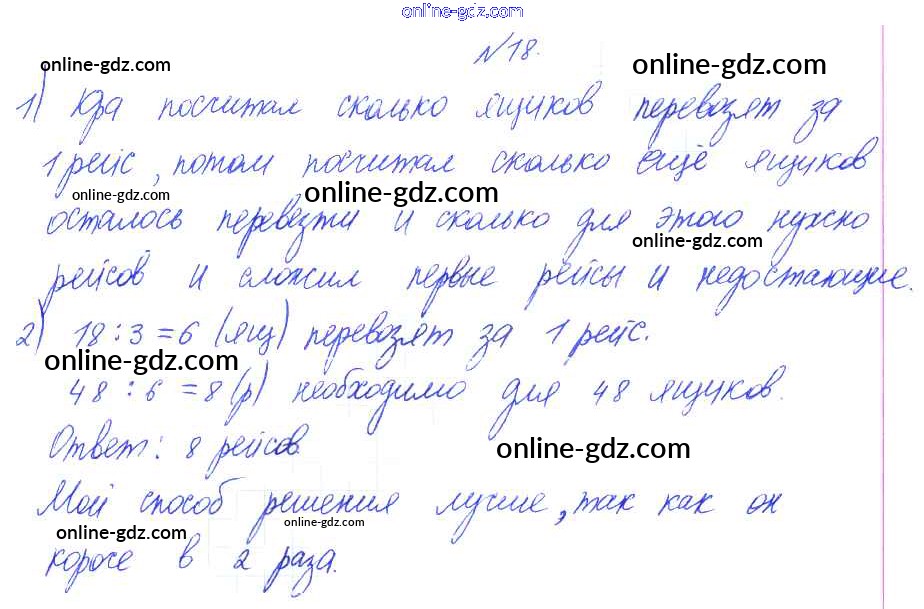 online-gdz.com
№18.
online-gdz.com online-gdz.com
1) Юра посчитал сколько ящиков перевозят за
1 рейс, потом посчитал сколько ещё ящиков
online-gdz.com online-gdz.com
осталось перевезти и сколько для этого нужно
online-gdz.com
рейсов и сложил первые рейсы и недостающие.
2) 18:3=6 (ящ) перевозят за 1 рейс.
online-gdz.com
48:6=8(р) необходимо для 48 ящиков.
Ответ: 8 рейсов.
online-gdz.com
Мой способ решения лучше, так как он
online-gdz.com online-gdz.com
короче в 2 раза.